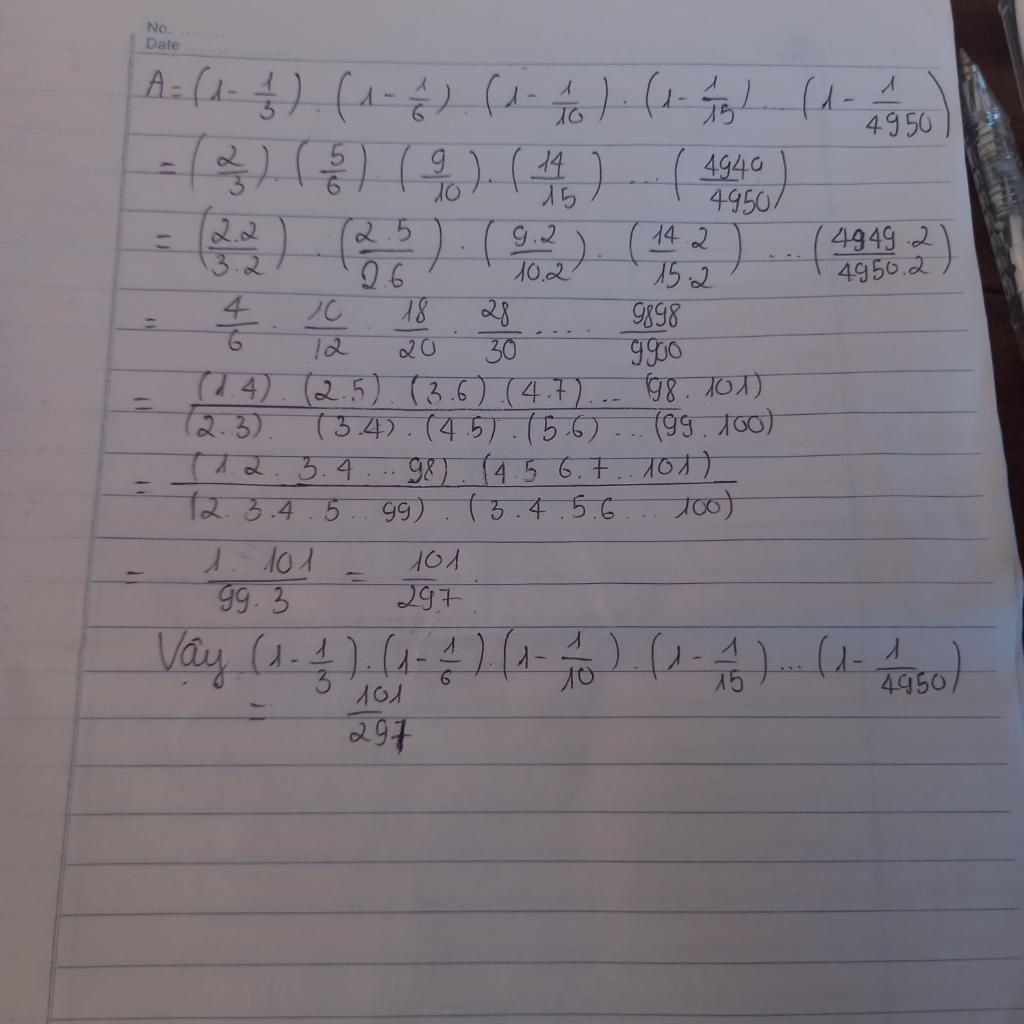 No. ........
Date ........
A = (1 - 1/3) . (1 - 1/6) . (1 - 1/10) . (1 - 1/15) ... (1 - 1/4950)
= (2/3) . (5/6) (9/10) . (14/15) ... (4949/4950)
= (2.2/3.2) . (2.5/2.6) . (9.2/10.2) . (14.2/15.2) ... (4949.2/4950.2)
= 4/6 . 10/12 . 18/20 . 28/30 .... 9898/9900
= (1.4) . (2.5) . (3.6) . (4.7) ... (98.101) / (2.3) . (3.4) . (4.5) . (5.6) ... (99.100)
= (1.2.3.4...98) . (4.5.6.7...101) / (2.3.4.5..99) . (3.4.5.6...100)
= 1.101/99.3 = 101/297.
Vậy (1 - 1/3) . (1 - 1/6) . (1 - 1/10) . (1 - 1/15) ... (1 - 1/4950)
= 101/297